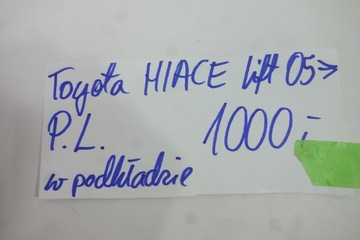 Toyota HIACE lift 05->
P.L. 1000,-
w podkładzie